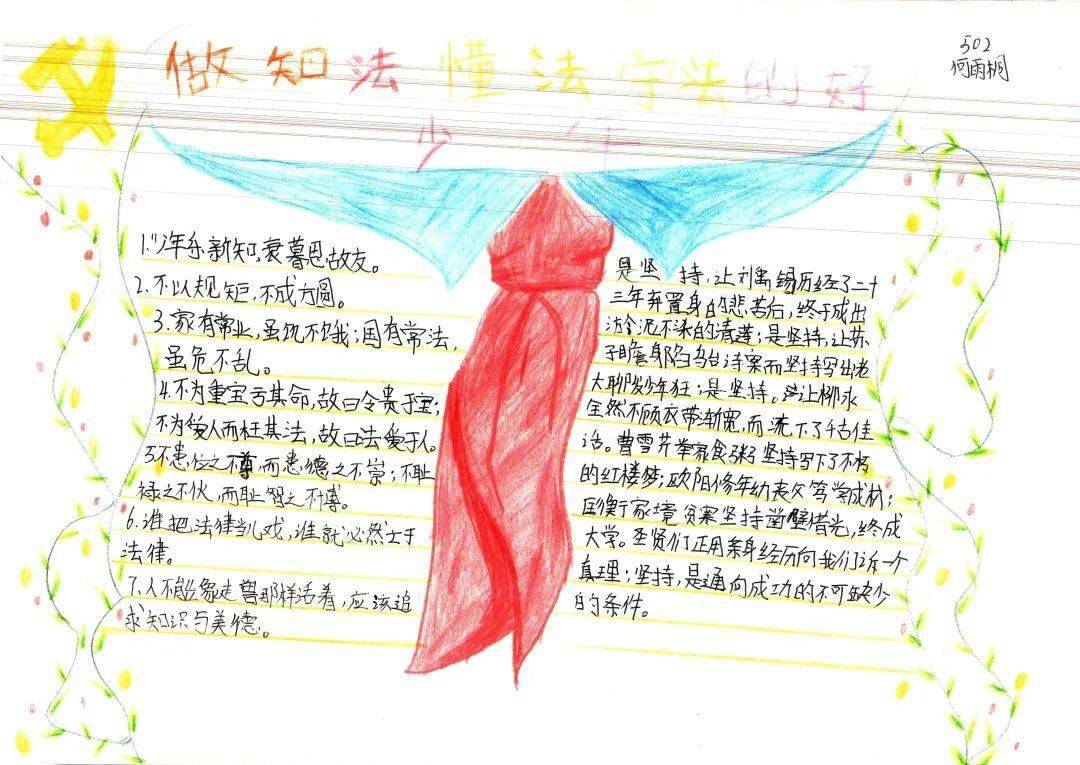 做知法懂法守法的好
少年
502
何雨桐
1.少年乐新知,衰暮思故友。
2.不以规短,不成方圆。
3.家有常业,虽饥不饿;国有常法,
虽危不乱。
4.不为重宝亏其命,故曰令贵于宝;
不为爱人而枉其法,故曰法爱于人。
5不患位之不尊,而患德之不崇;不耻
禄之不伙,而耻智之不博。
6.谁把法律当儿戏,谁就必然亡于
法律。
7.人不能象走兽那样活着,应该追
求知识与美德。
是坚持,让刘禹锡历经了二十
三年弃置身的悲苦后,终于成出
污泥不染的清莲;是坚持,让苏
子瞻身陷乌台诗案而坚持写出老
夫聊发少年狂;是坚持。让柳永
全然不顾衣带渐宽,而流下了千古佳
话。曹雪芹举家食粥坚持写下了不朽
的红楼梦;欧阳修年幼丧父笃学成材;
匡衡家境贫寒坚持凿壁借光,终成
大学。圣贤们正用亲身经历向我们诉一个
真理;坚持,是通向成功的不可缺少
的条件。